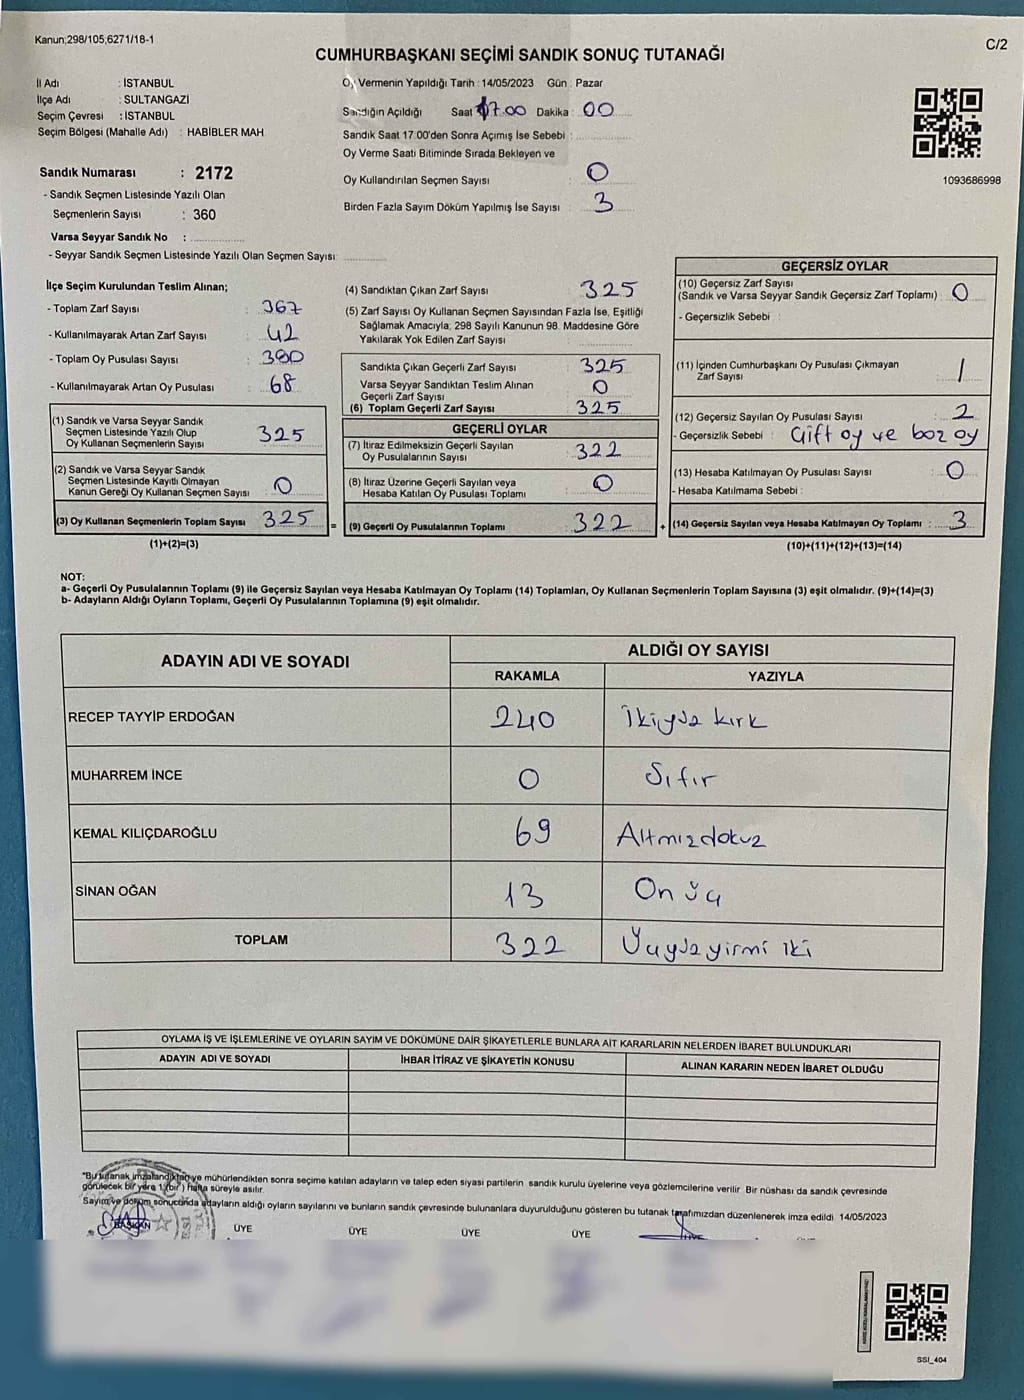 Kanun;298/105,6271/18-1
C/2
CUMHURBAŞKANI SEÇİMİ SANDIK SONUÇ TUTANAĞI
İl Adı : İSTANBUL
İlçe Adı : SULTANGAZİ
Seçim Çevresi : İSTANBUL
Seçim Bölgesi (Mahalle Adı) : HABİBLER MAH
Oy Vermenin Yapıldığı Tarih : 14/05/2023 Gün : Pazar
Sandığın Açıldığı Saat 17.00 Dakika : 00
Sandık Saat 17:00'den Sonra Açımış İse Sebebi :
Oy Verme Saati Bitiminde Sırada Bekleyen ve
Oy Kullandırılan Seçmen Sayısı : 0
Birden Fazla Sayım Döküm Yapılmış İse Sayısı : 3
1093686998
Sandık Numarası : 2172
- Sandık Seçmen Listesinde Yazılı Olan
Seçmenlerin Sayısı : 360
Varsa Seyyar Sandık No :
- Seyyar Sandık Seçmen Listesinde Yazılı Olan Seçmen Sayısı:
İlçe Seçim Kurulundan Teslim Alınan;
- Toplam Zarf Sayısı : 367
- Kullanılmayarak Artan Zarf Sayısı : 42
- Toplam Oy Pusulası Sayısı : 390
- Kullanılmayarak Artan Oy Pusulası : 68
(1) Sandık ve Varsa Seyyar Sandık
Seçmen Listesinde Yazılı Olup
Oy Kullanan Seçmenlerin Sayısı : 325
(2) Sandık ve Varsa Seyyar Sandık
Seçmen Listesinde Kayıtlı Olmayan
Kanun Gereği Oy Kullanan Seçmen Sayısı : 0
(3) Oy Kullanan Seçmenlerin Toplam Sayısı 325 =
(1)+(2)=(3)
(4) Sandıktan Çıkan Zarf Sayısı : 325
(5) Zarf Sayısı Oy Kullanan Seçmen Sayısından Fazla İse, Eşitliği
Sağlamak Amacıyla; 298 Sayılı Kanunun 98. Maddesine Göre
Yakılarak Yok Edilen Zarf Sayısı :
Sandıkta Çıkan Geçerli Zarf Sayısı : 325
Varsa Seyyar Sandıktan Teslim Alınan
Geçerli Zarf Sayısı : 0
(6) Toplam Geçerli Zarf Sayısı : 325
GEÇERLİ OYLAR
(7) İtiraz Edilmeksizin Geçerli Sayılan
Oy Pusulalarının Sayısı : 322
(8) İtiraz Üzerine Geçerli Sayılan veya
Hesaba Katılan Oy Pusulası Toplamı : 0
(9) Geçerli Oy Pusulalarının Toplamı : 322 +
GEÇERSİZ OYLAR
(10) Geçersiz Zarf Sayısı
(Sandık ve Varsa Seyyar Sandık Geçersiz Zarf Toplamı) : 0
- Geçersizlik Sebebi :
(11) İçinden Cumhurbaşkanı Oy Pusulası Çıkmayan
Zarf Sayısı : 1
(12) Geçersiz Sayılan Oy Pusulası Sayısı : 2
- Geçersizlik Sebebi : Çift oy ve boz oy
(13) Hesaba Katılmayan Oy Pusulası Sayısı : 0
- Hesaba Katılmama Sebebi :
(14) Geçersiz Sayılan veya Hesaba Katılmayan Oy Toplamı : 3
(10)+(11)+(12)+(13)=(14)
NOT:
a- Geçerli Oy Pusulalarının Toplamı (9) ile Geçersiz Sayılan veya Hesaba Katılmayan Oy Toplamı (14) Toplamları, Oy Kullanan Seçmenlerin Toplam Sayısına (3) eşit olmalıdır. (9)+(14)=(3)
b- Adayların Aldığı Oyların Toplamı, Geçerli Oy Pusulalarının Toplamına (9) eşit olmalıdır.
ADAYIN ADI VE SOYADI ALDIĞI OY SAYISI
RAKAMLA YAZIYLA
RECEP TAYYİP ERDOĞAN 240 İkiyüz kırk
MUHARREM İNCE 0 Sıfır
KEMAL KILIÇDAROĞLU 69 Altmışdokuz
SİNAN OĞAN 13 On üç
TOPLAM 322 Üçyüzyirmi iki
OYLAMA İŞ VE İŞLEMLERİNE VE OYLARIN SAYIM VE DÖKÜMÜNE DAİR ŞİKAYETLERLE BUNLARA AİT KARARLARIN NELERDEN İBARET BULUNDUKLARI
ADAYIN ADI VE SOYADI İHBAR İTİRAZ VE ŞİKAYETİN KONUSU ALINAN KARARIN NEDEN İBARET OLDUĞU
"Bu tutanak imzalandıktan ve mühürlendikten sonra seçime katılan adayların ve talep eden siyasi partilerin sandık kurulu üyelerine veya gözlemcilerine verilir. Bir nüshası da sandık çevresinde
görülecek bir yere 1 (bir) hafta süreyle asılır.
Sayım ve döküm sonucunda adayların aldığı oyların sayılarını ve bunların sandık çevresinde bulunanlara duyurulduğunu gösteren bu tutanak tarafımızdan düzenlenerek imza edildi. 14/05/2023
BAŞKAN ÜYE ÜYE ÜYE ÜYE ÜYE
SSI_404